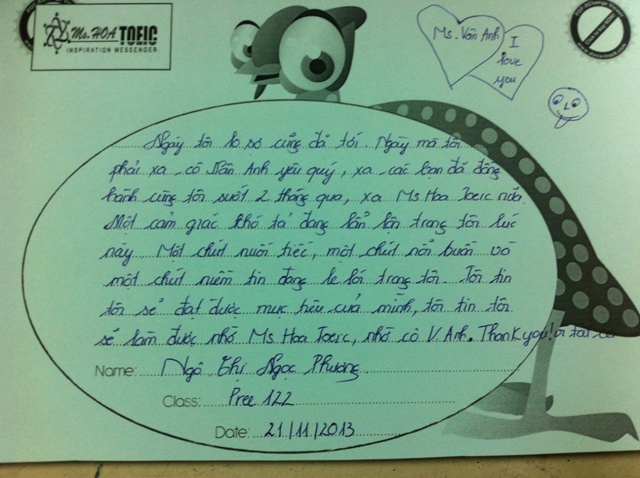 Ms. HOA TOEIC
INSPIRATION MESSENGER
Ms. Vân Anh
I
love
you
Ngày tôi lo sợ cũng đã tới. Ngày mà tôi
phải xa, cô Vân Anh yêu quý, xa các bạn đã đồng
hành cùng tôi suốt 2 tháng qua, xa Ms Hoa Toeic nữa.
Một cảm giác khó tả đang lẩn lộn trong tôi lúc
này. Một chút nuối tiếc, một chút nỗi buồn và
một chút niềm tin đang le lói trong tôi. Tôi tin
tôi sẽ đạt được mục tiêu của mình, tôi tin tôi
sẽ làm được nhờ Ms Hoa Toeic, nhờ cô V Anh. Thank you! vì tất cả
Name: Ngô Thị Ngọc Phương
Class: Pree 122
Date: 21/11/2013